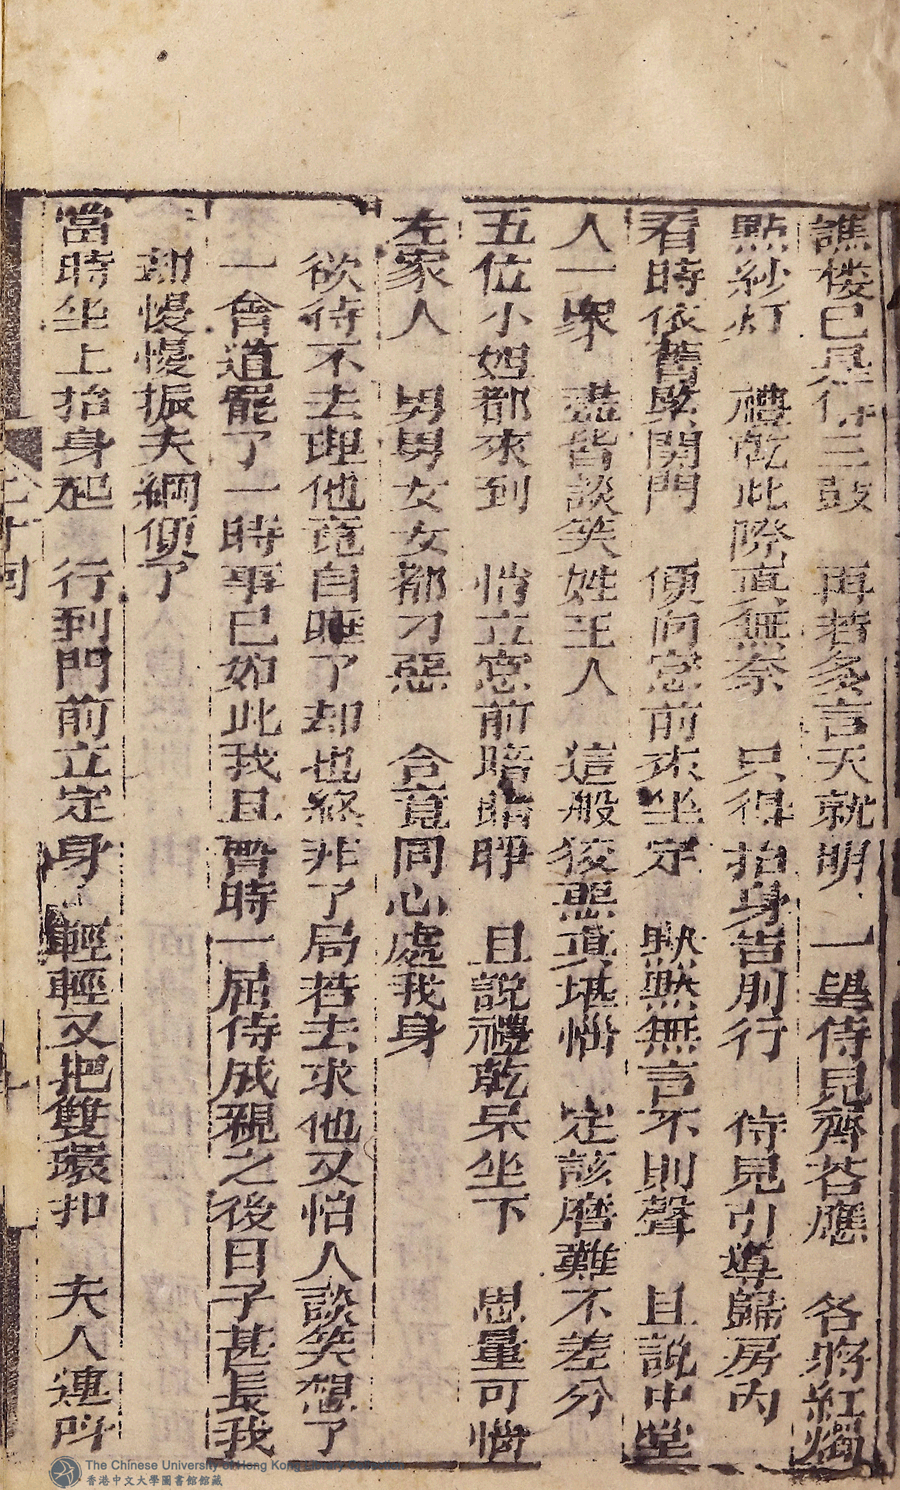 譙楼已是行三鼓　再若多言天就明　一望侍見齊荅應　各將紅燭
點紗灯　禮乾此際真無奈　只得抬身告別行　侍見引導歸房內
看時依舊緊閉門　便向窓前來坐定　默默無言不則聲　且說中堂
人一衆　盡皆談笑姓王人　這般狡惡真堪惱　定該磨難不差分
五位小姐都來到　悄立窓前暗暗睜　且說禮乾呆坐下　思量可惱
左家人　男男女女都刁惡　合意同心處我身
欲待不去理他竟自睡了却也終非了局若去求他又怕人談笑想了
一會道罷了一時事已如此我且暫時一屈侍成親之後日子甚長我
却慢慢振夫綱便了
當時坐上抬身起　行到門前立定身　輕輕又把雙環扣　夫人連呌
The Chinese University of Hong Kong Library Collection
香港中文大學圖書館館藏